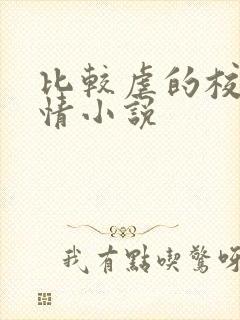 比較虐的校
情小說
我有點喫驚呀